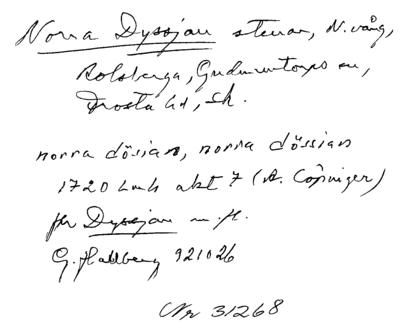 Norra Dyssjan stenar, N. vång,
Rolsberga, Gudmuntorps sn,
Frosta hd, Sk.
norra dösian, norra dössian
1720 Lmh akt 7 (A. Cöpinger)
för Dyssjan m.fl.
G. Hallberg 921026
Nr 31268